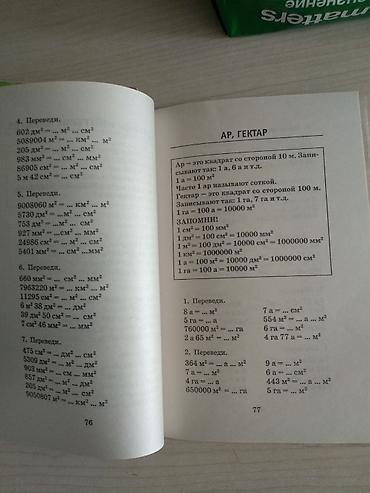 matters
значение
4. Переведи.
602 дм² = ... м² ... см²
5089004 м² = ... км² ... м²
205 дм² = ... м² ... см²
983 мм² = ... см² ... мм²
86905 см² = ... м² ... см²
5 м 42 см² = ... см²
5. Переведи.
9008060 м² = ... км² ... м²
5730 дм² = ...м² ... см²
753 дм² = ...м² ... см²
927 см² = ...дм² ...мм²
24986 см² = ...м² ...см²
5401 см² = ...см² ...мм²
6. Переведи.
660 мм² = ... см² ... мм²
7963220 м² = ... км² ... м²
11295 см² = ... м² ... см²
6 м² 38 дм² = ... дм²
39 дм² 50 см² = ... см²
7 см² 46 мм² = ... мм²
7. Переведи.
475 см² = ... дм² ... см²
5309 дм² = ... м² ... дм²
903 мм² = ... см² ... мм²
857 дм² = ... м² ... дм²
205 дм² = ... м² ... см²
9050807 м² = ... км² ... м²
76
АР, ГЕКТАР
Ар – это квадрат со стороной 10 м. Запи-
сывают так: 1 а, 6 а и т.д.
1 а = 100 м²
Часто 1 ар называют соткой.
Гектар – это квадрат со стороной 100 м.
Записывают так: 1 га, 7 га и т.д.
1 га = 100 а = 10000 м²
ЗАПОМНИ!
1 см² = 100 мм²
1 дм² = 100 см² = 10000 мм²
1 м² = 100 дм² = 10000 см² = 1000000 мм²
1 км² = 1000000 м²
1 а = 100 м² = 10000 дм² = 1000000 см²
1 га = 100 а = 10000 м²
1. Переведи.
8 а = ... м²
5 га = ... а
760000 м² = ... га
2 а 65 м² = ... м²
7 а = ... см²
554 м² = ... а ... м²
6 га = ... м²
4 га 77 а = ... м²
2. Переведи.
364 м² = ... а ... м²
7 а = ... м²
4 га = ... а
650000 м² = ... га
9 а = ... м²
6 а = ... см²
443 м² = ... а ... м²
5 га = ... м²
77